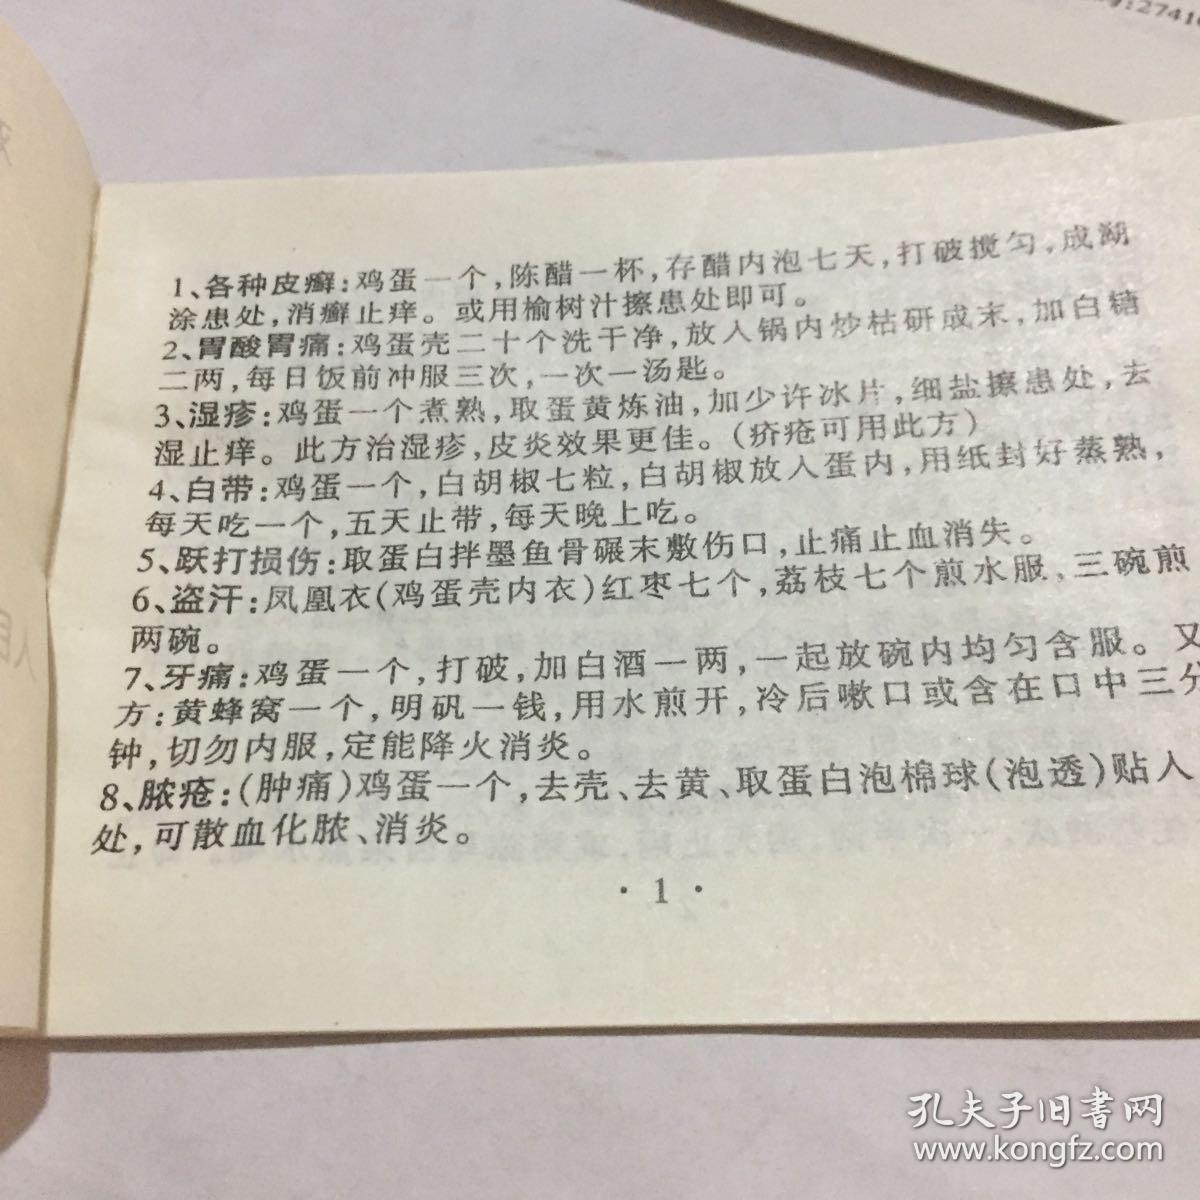 1、各种皮癣:鸡蛋一个,陈醋一杯,存醋内泡七天,打破搅匀,成湖
涂患处,消癣止痒。或用榆树汁擦患处即可。
2、胃酸胃痛:鸡蛋壳二十个洗干净,放入锅内炒枯研成末,加白糖
二两,每日饭前冲服三次,一次一汤匙。
3、湿疹:鸡蛋一个煮熟,取蛋黄炼油,加少许冰片,细盐擦患处,去
湿止痒。此方治湿疹,皮炎效果更佳。(疥疮可用此方)
4、白带:鸡蛋一个,白胡椒七粒,白胡椒放入蛋内,用纸封好蒸熟,
每天吃一个,五天止带,每天晚上吃。
5、跃打损伤:取蛋白拌墨鱼骨碾末敷伤口,止痛止血消失。
6、盗汗:凤凰衣(鸡蛋壳内衣)红枣七个,荔枝七个煎水服,三碗煎
两碗。
7、牙痛:鸡蛋一个,打破,加白酒一两,一起放碗内均匀含服。又
方:黄蜂窝一个,明矾一钱,用水煎开,冷后嗽口或含在口中三分
钟,切勿内服,定能降火消炎。
8、脓疮:(肿痛)鸡蛋一个,去壳、去黄、取蛋白泡棉球(泡透)贴人
处,可散血化脓、消炎。
·1·
孔夫子旧书网
www.kongfz.com